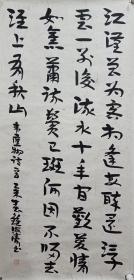 江漢曾为客相逢每醉還浮
雲一别後流水十年间歡笑情
如舊蕭疏鬢已斑何因不歸去
淮上有秋山 韋應物詩